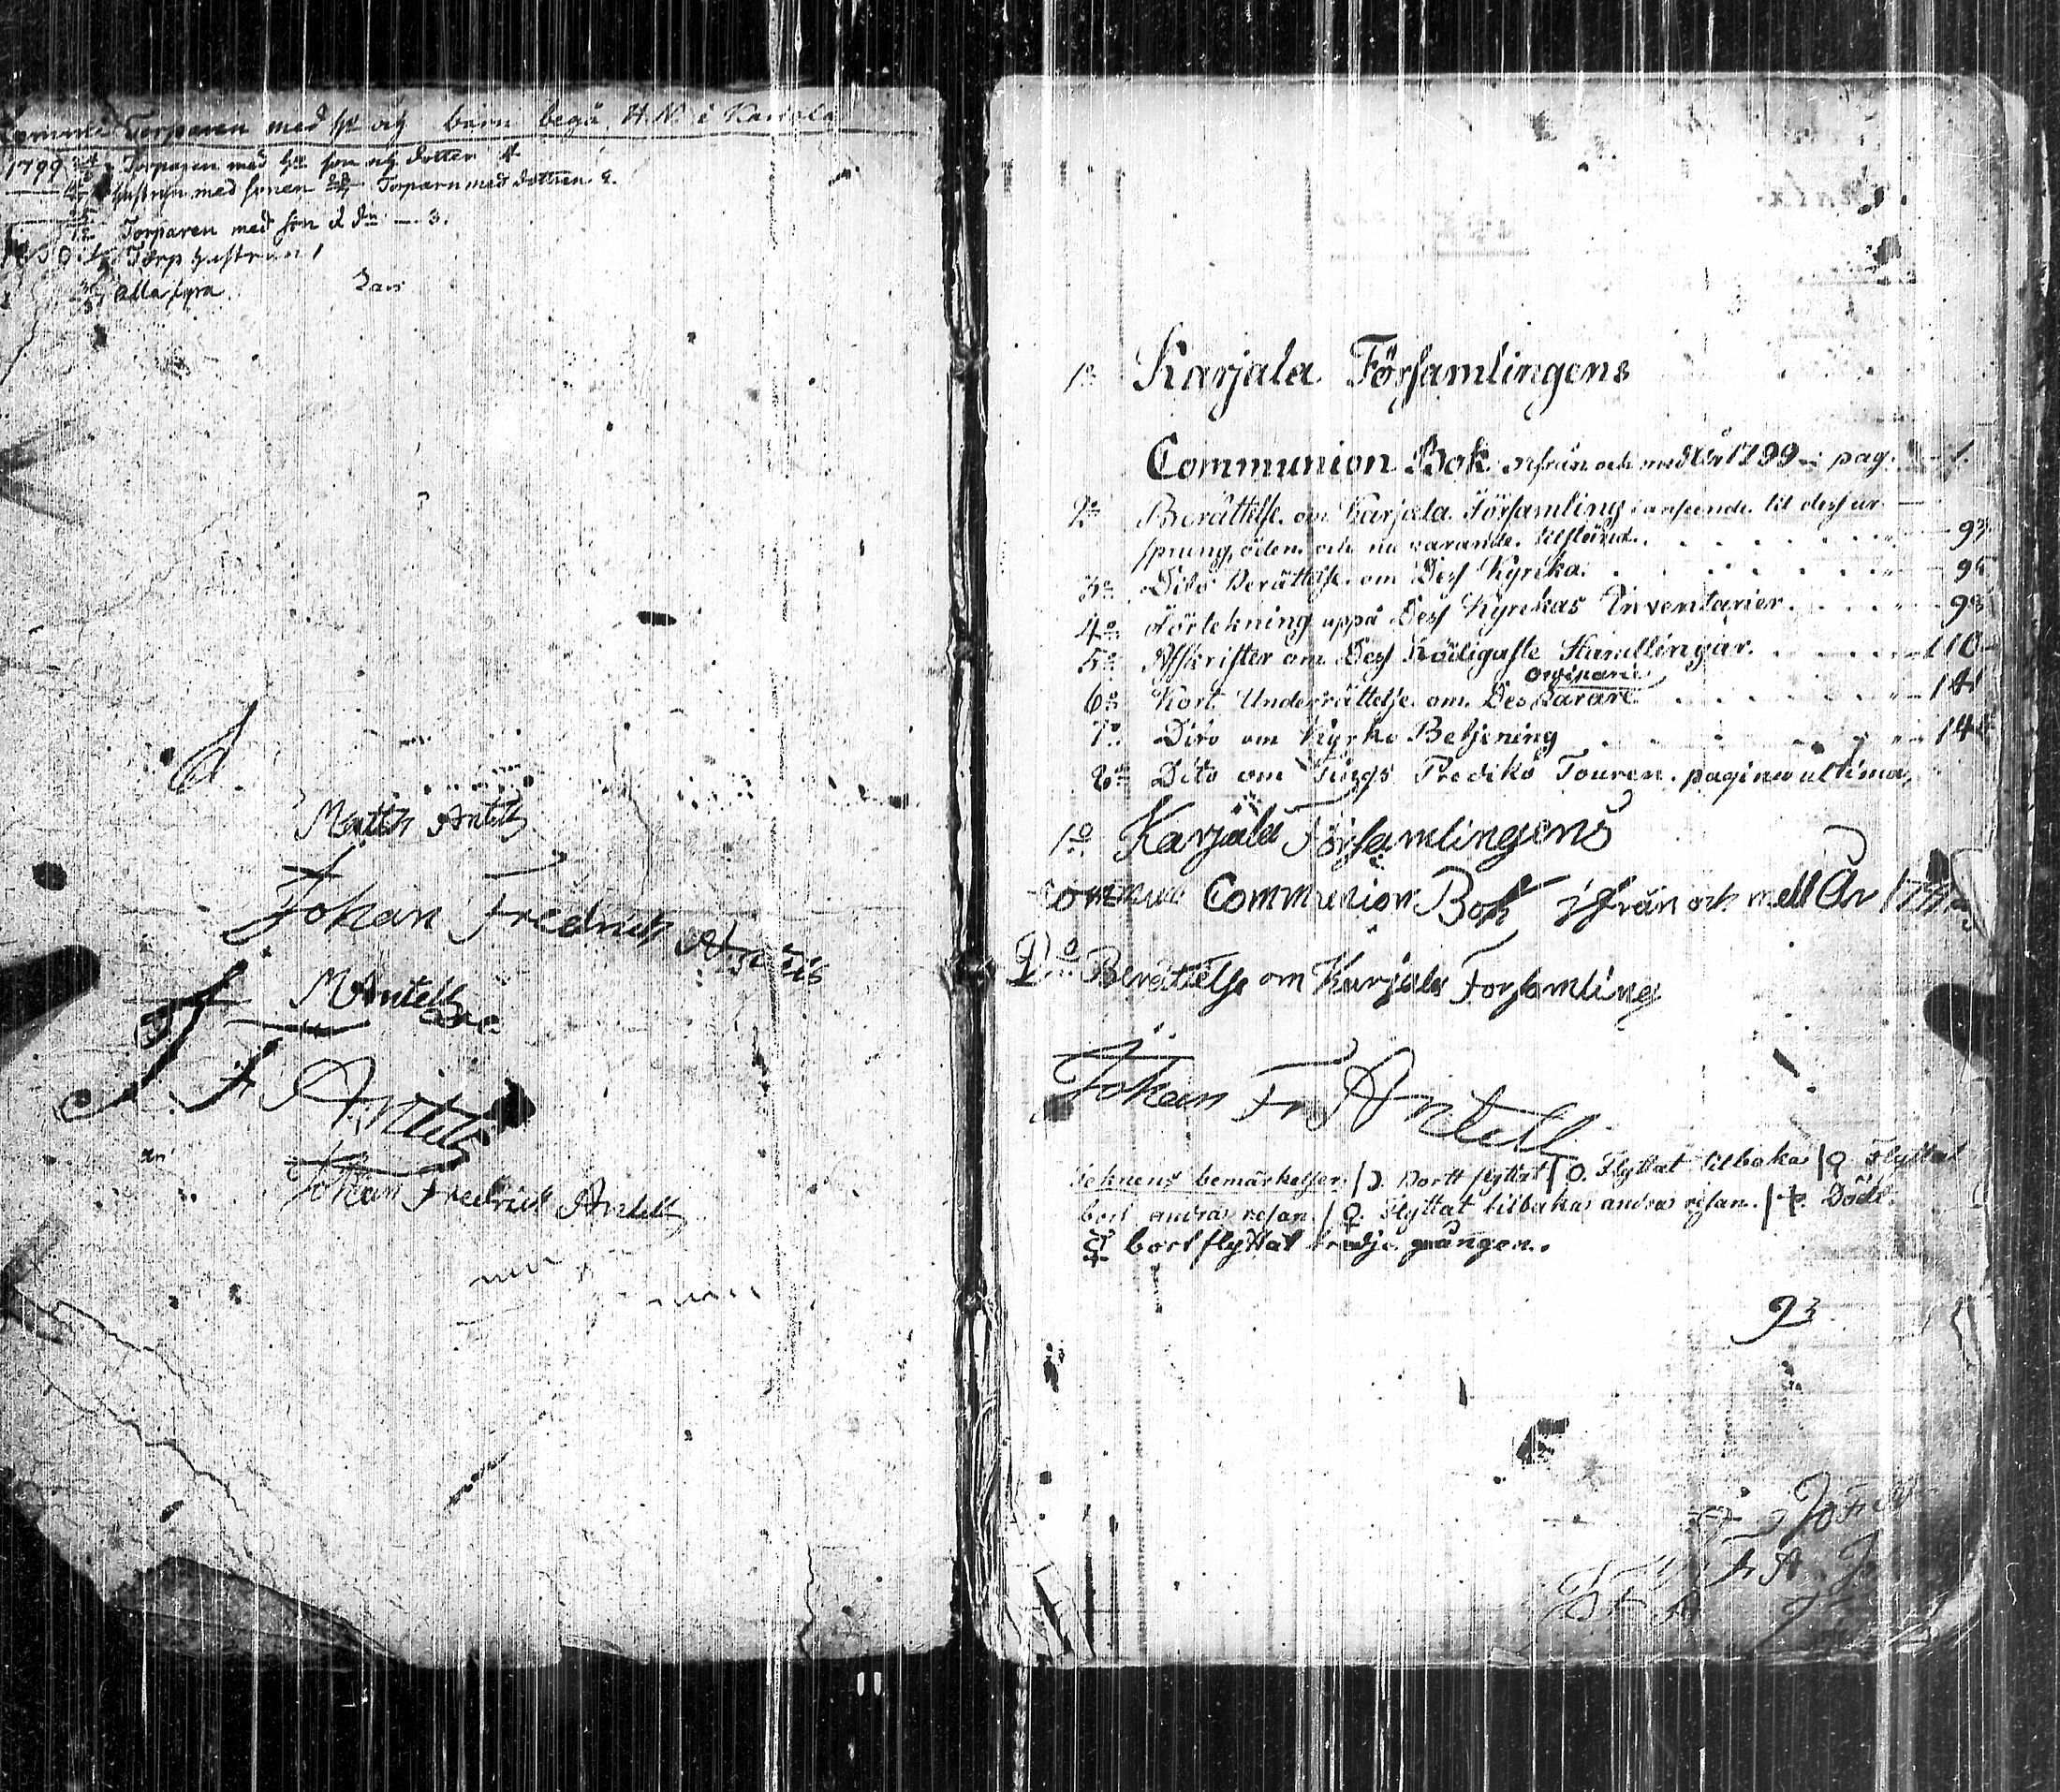 Torparen med h:u och barn begå H.N. i Karjala
1799 Torparen med h:u son och dotter 4
hustrun med sonen Torparn med dottren 2.
Torparen med son d d:n — 3.
Torp hustrun 1
alla fyra
Matts Antell
Johan Fredrick
M Antell
Fr Antell
Johan Fredrick Antell
1:o Karjala Församlingens
Communion Bok ifrån och med År 1799 — pag. 1.
2:o Berättelse om Karjala Församling i anseende til dess ur
sprung, öden och nu varande tilstånd. 93
3:o Dito Berättelse om Dess Kyrka. 95
4:o Förtekning uppå Dess Kyrckas Inventarier. 98
5:o Afskrifter om Dess Nödigaste Handlingar. 110
ordinarie
6:o Kort Underrättelse om Des Karare 141
7:o Dito om Kyrko Betjening 144
8:o Dito om Tings Prediko Touren. pagina ultima
1:o Karjala Församlingens
Communion Bok ifrån och med År
2:o Berättelse om Karjala Forsamling
Johan Fr Antell
Teknens bemärkelser. / Bortt flyttat / Flyttat tilbaka / Flyttat
bort andra resan. / Flyttat tilbaka andra resan. / Död.
bortflyttat tredje gången.
93